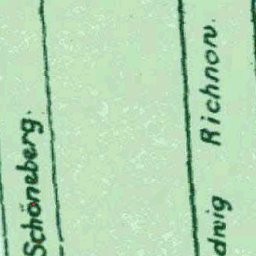 Schöneberg.
dwig Richnow.